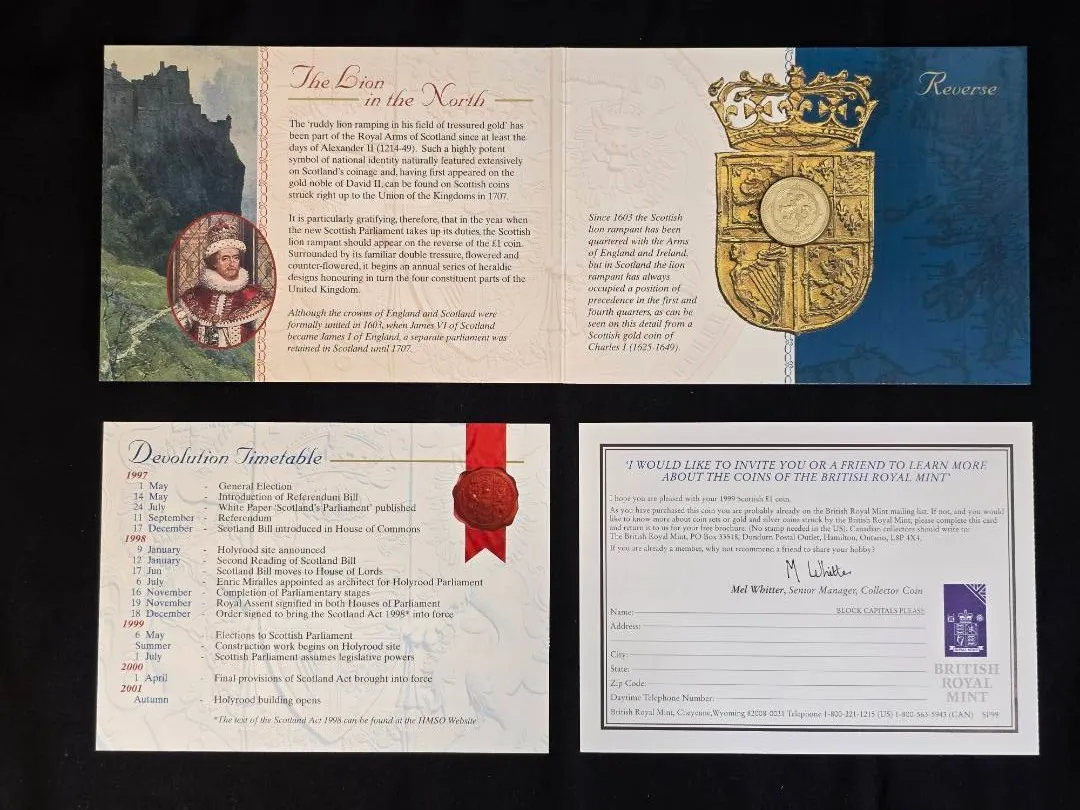 The Lion
in the North
The 'ruddy lion ramping in his field of tressured gold' has
been part of the Royal Arms of Scotland since at least the
days of Alexander II (1214-49). Such a highly potent
symbol of national identity naturally featured extensively
on Scotland's coinage and, having first appeared on the
gold noble of David II, can be found on Scottish coins
struck right up to the Union of the Kingdoms in 1707.
It is particularly gratifying, therefore, that in the year when
the new Scottish Parliament takes up its duties, the Scottish
lion rampant should appear on the reverse of the £1 coin.
Surrounded by its familiar double tressure, flowered and
counter-flowered, it begins an annual series of heraldic
designs honouring in turn the four constituent parts of the
United Kingdom.
Although the crowns of England and Scotland were
formally united in 1603, when James VI of Scotland
became James I of England, a separate parliament was
retained in Scotland until 1707.
Since 1603 the Scottish
lion rampant has been
quartered with the Arms
of England and Ireland,
but in Scotland the lion
rampant has always
occupied a position of
precedence in the first and
fourth quarters, as can be
seen on this detail from a
Scottish gold coin of
Charles I (1625-1649).
Reverse
Devolution Timetable
1997
1 May - General Election
14 May - Introduction of Referendum Bill
24 July - White Paper 'Scotland's Parliament' published
11 September - Referendum
17 December - Scotland Bill introduced in House of Commons
1998
9 January - Holyrood site announced
12 January - Second Reading of Scotland Bill
17 Jun - Scotland Bill moves to House of Lords
6 July - Enric Miralles appointed as architect for Holyrood Parliament
16 November - Completion of Parliamentary stages
19 November - Royal Assent signified in both Houses of Parliament
18 December - Order signed to bring the Scotland Act 1998* into force
1999
6 May - Elections to Scottish Parliament
Summer - Construction work begins on Holyrood site
1 July - Scottish Parliament assumes legislative powers
2000
1 April - Final provisions of Scotland Act brought into force
2001
Autumn - Holyrood building opens
*The text of the Scotland Act 1998 can be found at the HMSO Website
'I WOULD LIKE TO INVITE YOU OR A FRIEND TO LEARN MORE
ABOUT THE COINS OF THE BRITISH ROYAL MINT'
I hope you are pleased with your 1999 Scottish £1 coin.
As you have purchased this coin you are probably already on the British Royal Mint mailing list. If not, and you would
like to know more about coin sets or gold and silver coins struck by the British Royal Mint, please complete this card
and return it to us for your free brochure. (No stamp needed in the US). Canadian collectors should write to:
The British Royal Mint, PO Box 33518, Dundurn Postal Outlet, Hamilton, Ontario, L8P 4X4.
If you are already a member, why not recommend a friend to share your hobby?
M Whitter
Mel Whitter, Senior Manager, Collector Coin
BLOCK CAPITALS PLEASE
Name:
Address:
City:
State:
Zip Code:
Daytime Telephone Number:
BRITISH
ROYAL
MINT
British Royal Mint, Cheyenne, Wyoming 82008-0031 Telephone 1-800-221-1215 (US) 1-800-563-5943 (CAN) SP99